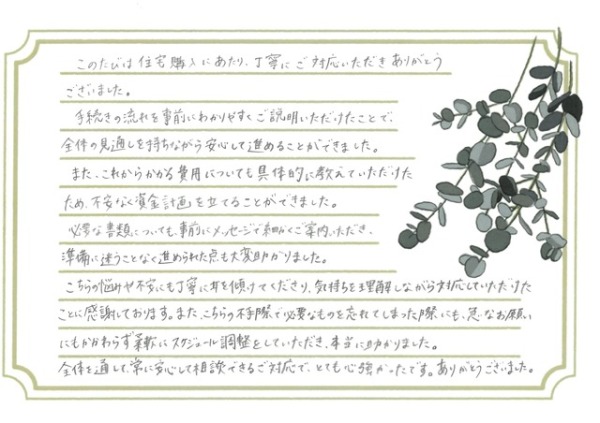 このたびは住宅購入にあたり、丁寧にご対応いただきありがとう
ございました。
手続きの流れを事前にわかりやすくご説明いただけたことで、
全体の見通しを持ちながら安心して進めることができました。
また、これからかかる費用についても具体的に教えていただけた
ため、不安なく資金計画を立てることができました。
必要な書類についても、事前にメッセージで細かくご案内いただき、
準備に迷うことなく進められた点も大変助かりました。
こちらの悩みや不安にも丁寧に耳を傾けてくださり、気持ちを理解しながら対応していただけた
ことに感謝しております。また、こちらの不手際で必要なものを忘れてしまった際にも、急なお願い
にもかかわらず柔軟にスケジュール調整をしていただき、本当に助かりました。
全体を通して、常に安心して相談できるご対応で、とても心強かったです。ありがとうございました。